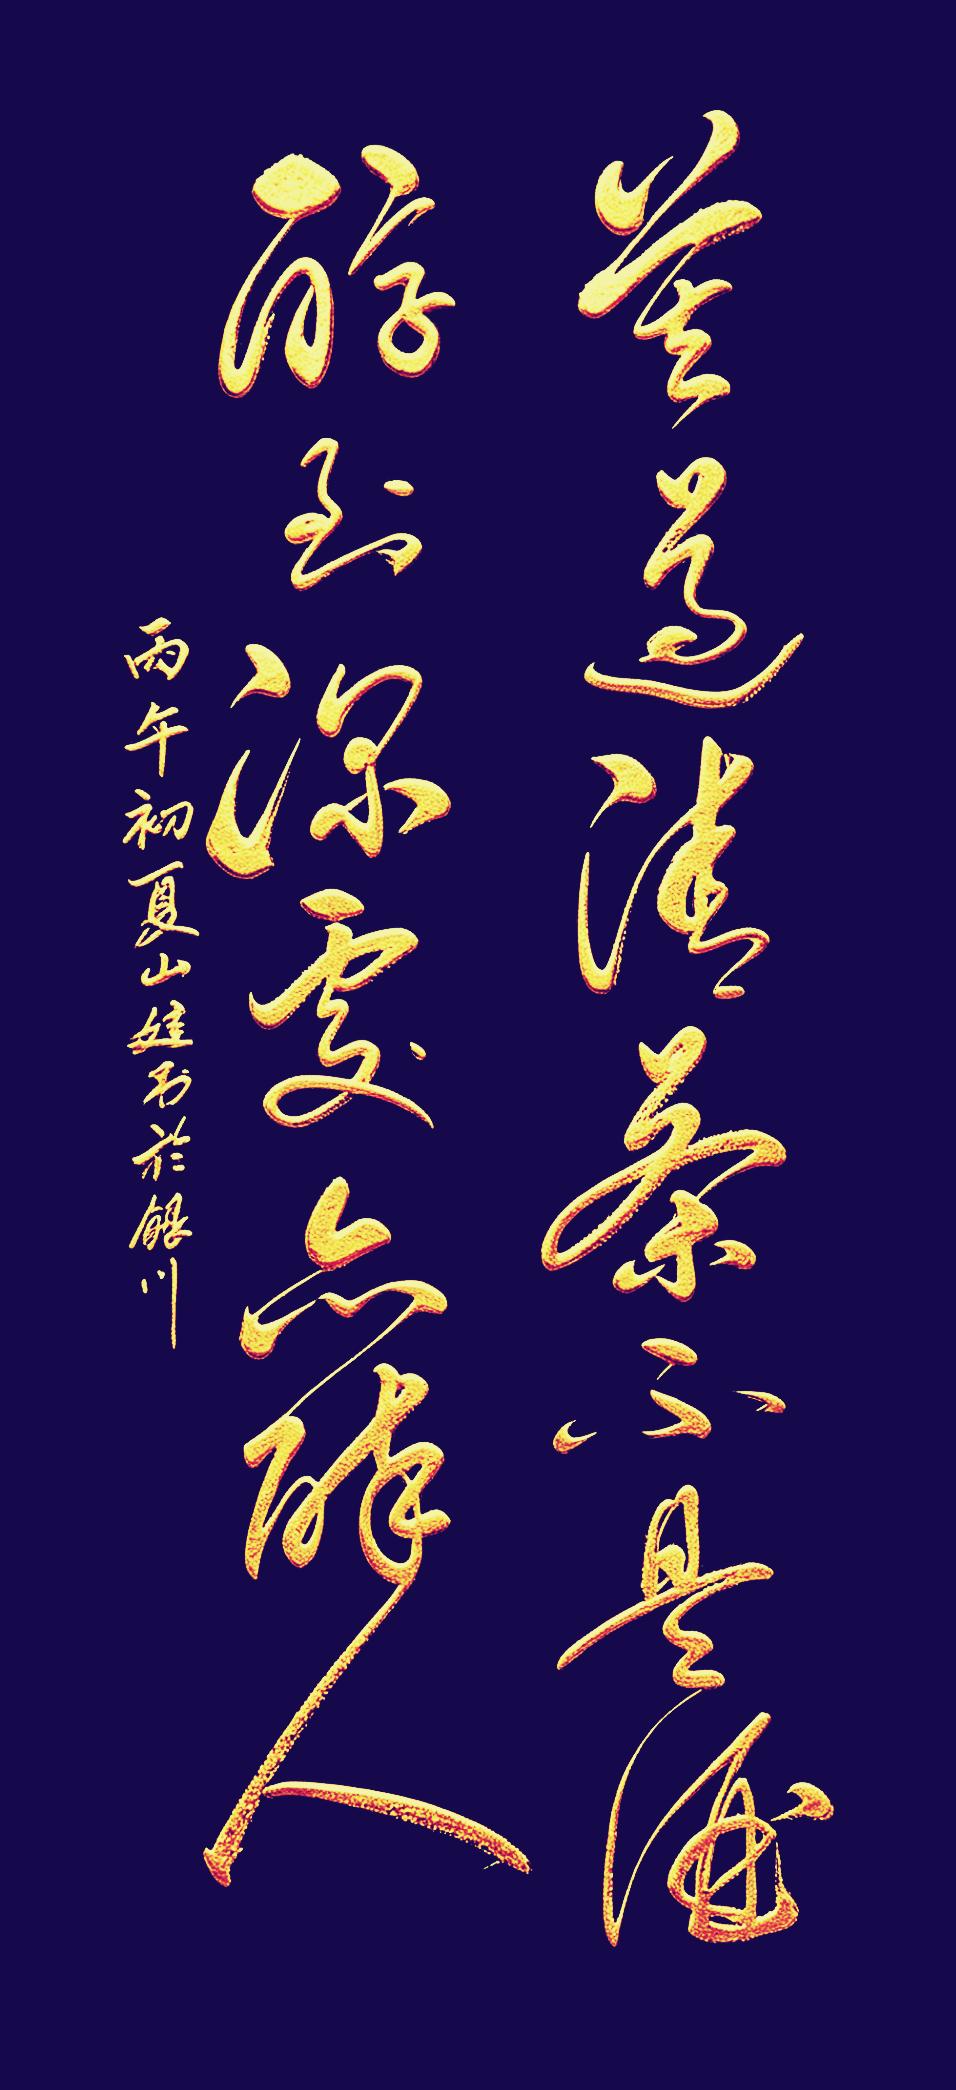 莫道清茶不是酒
醇到深處亦醉人
丙午初夏山娃书於銀川